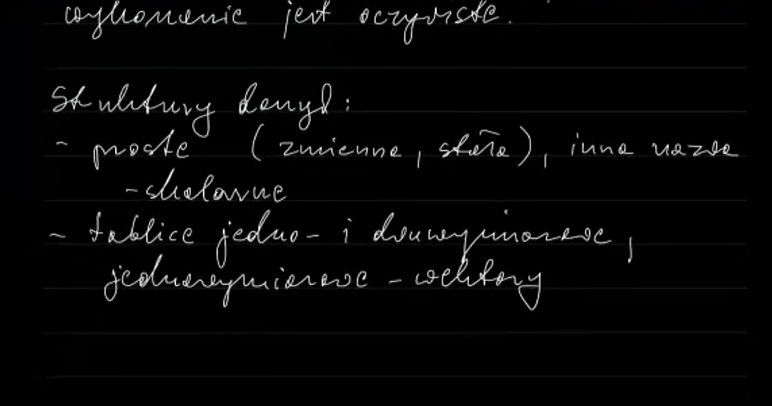 wykonanie jest oczywiste.
Struktury danych:
- proste (zmienna, stała), inna nazwa
- skalarne
- tablice jedno- i dwuwymiarowe,
jednowymiarowe - wektory